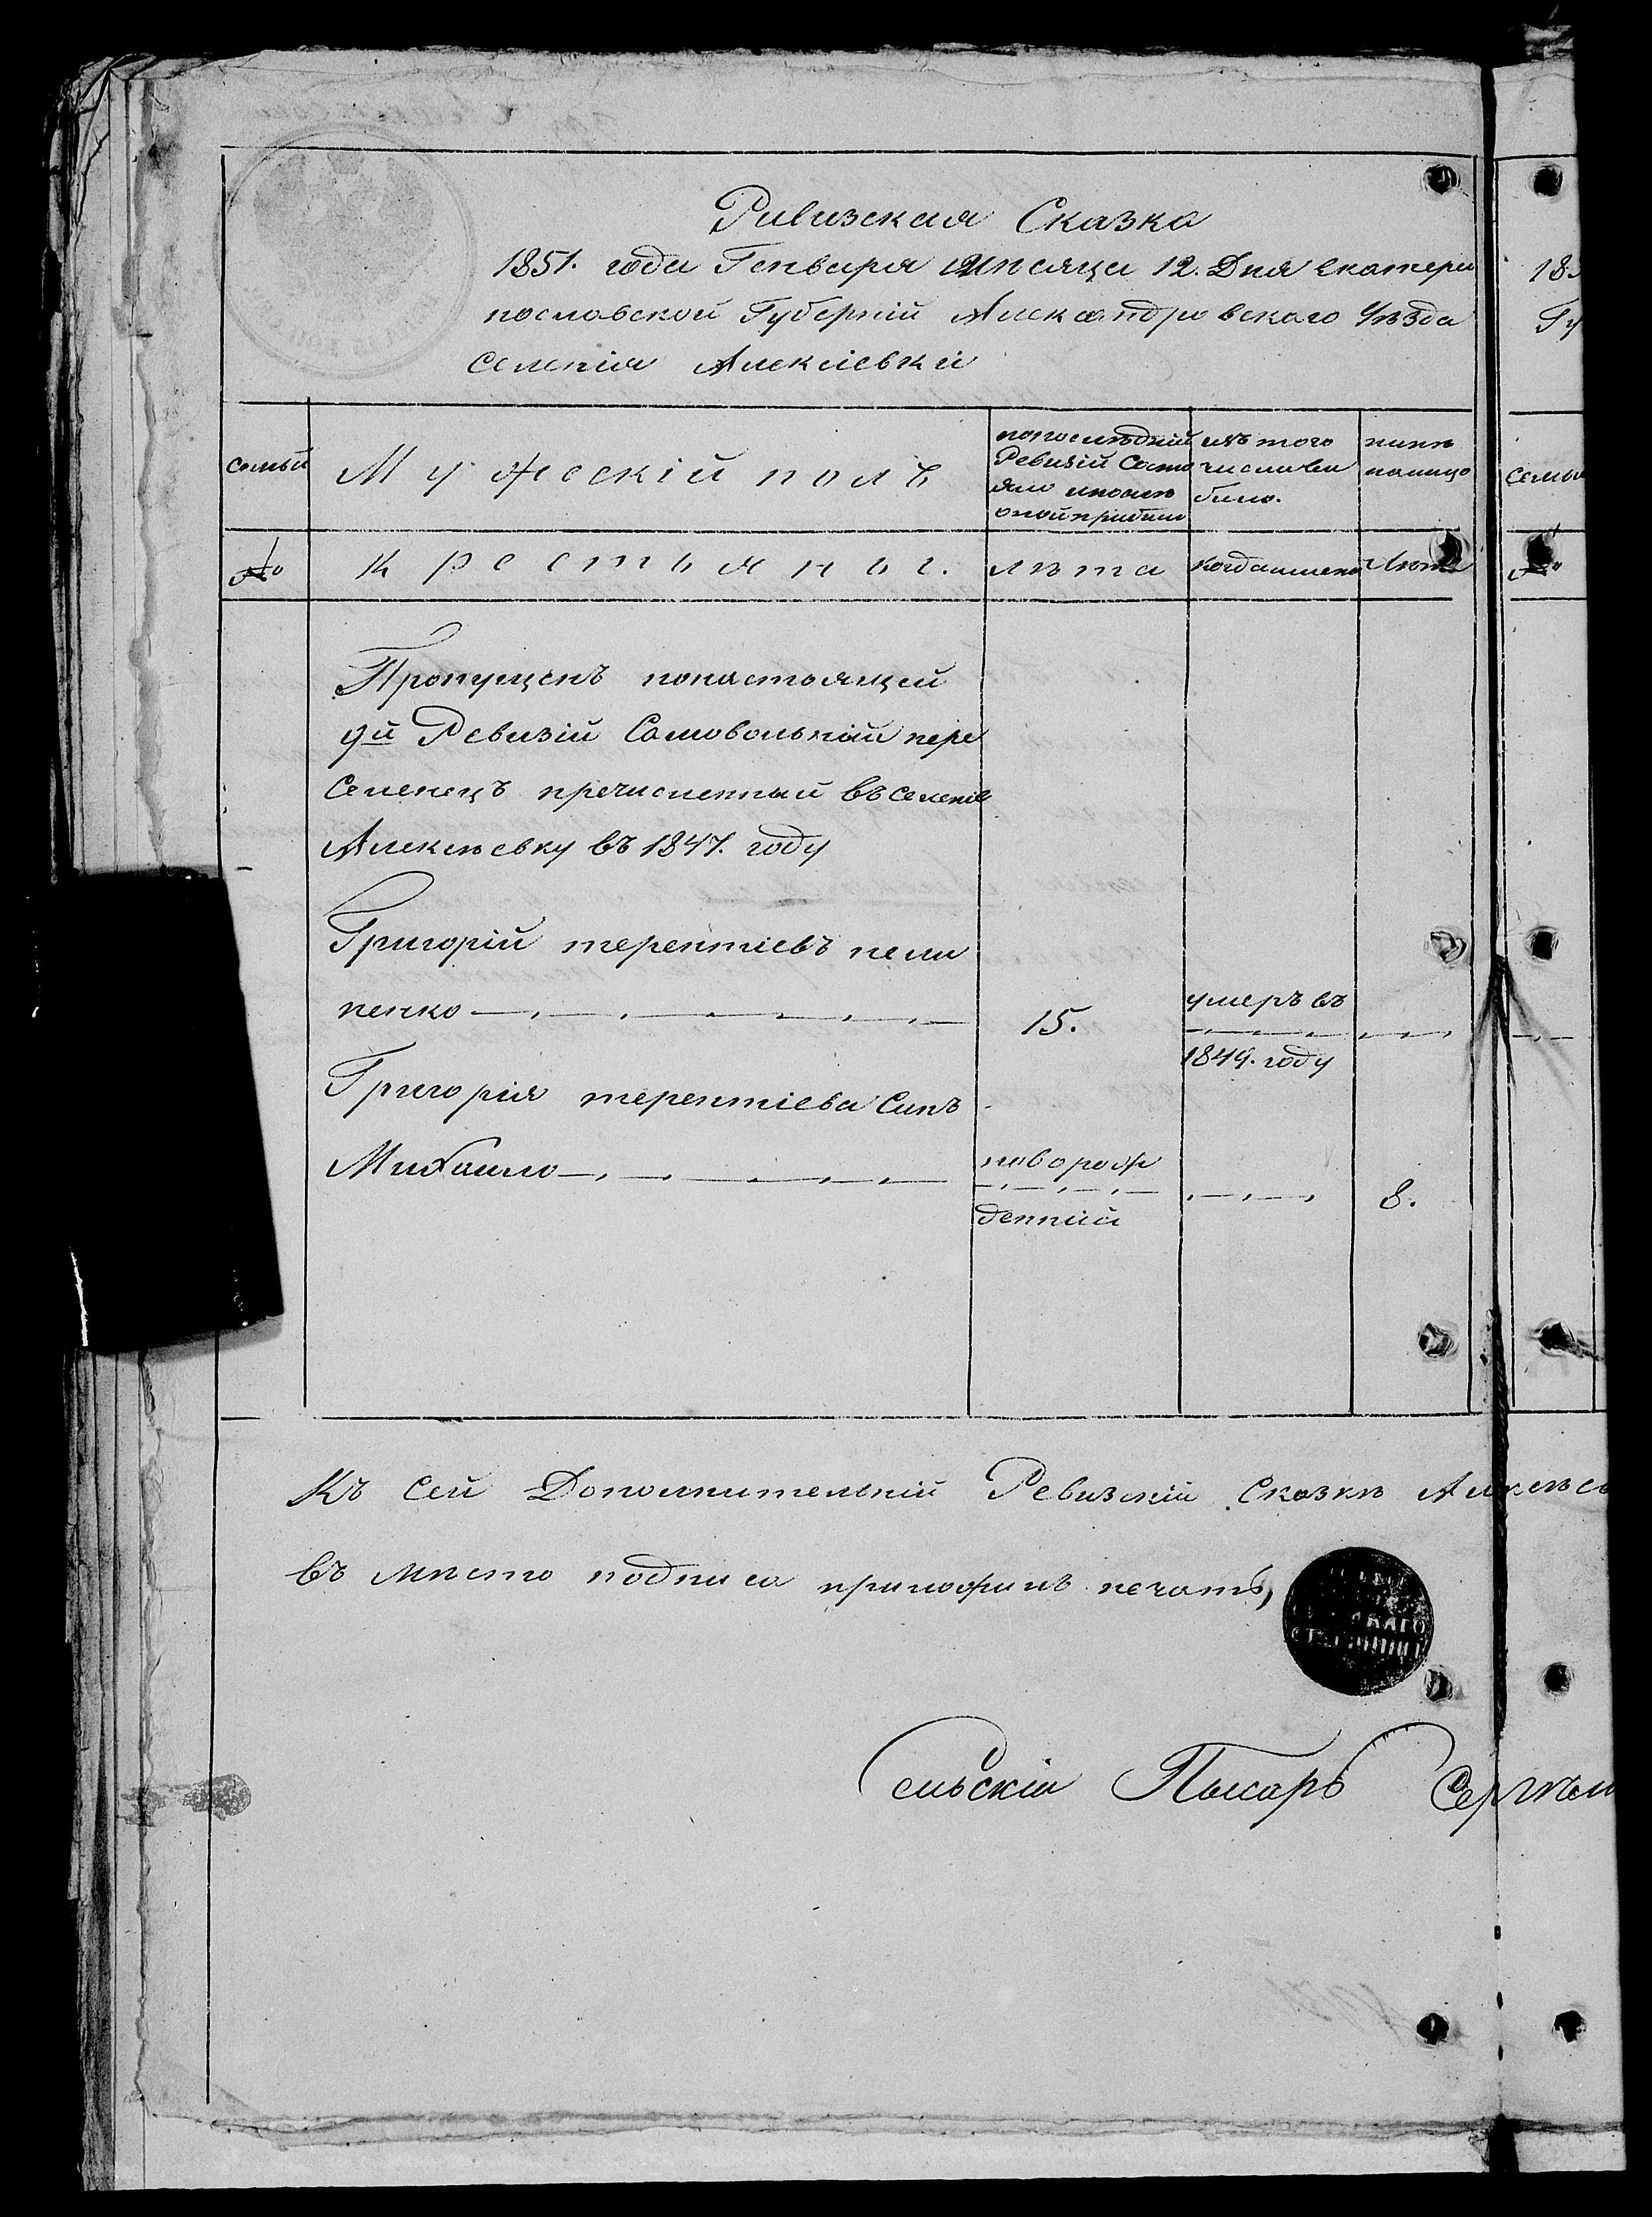 Ривизская Сказка
1851. года Генваря Мѣсяца 12. Дня Екатери
нославской Губерній Александровского Уѣзда
Селенія Алексіевки
семьи
Мужескій полъ
попоследній Ревизій Состо яло ипосле оной прибыло
изъ того числа вы было.
нынѣ налицо
семьи
№
Крестьяные.
лѣта
когда имено
Лѣта
№
Пропущенъ понастоящей
9й Ревизій Самовольный пере
Селенецъ пречисленный въ Селеніе
Алексѣевку въ 1847. году
Григорій терентіевъ пели
пенко
15.
умеръ въ
1849. году
Григорія терентіева Синъ
Михаило
ноборож
денный
8.
Къ Сей Дополнительній Ревизскій Сказкѣ Алексѣев
въ мѣсто подписа приложилъ печать,
Сельскій Писарь